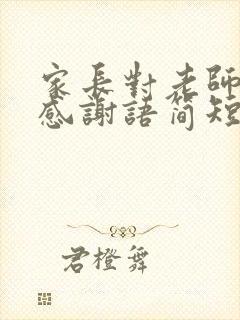 家長對老師
感謝語簡短
君橙舞